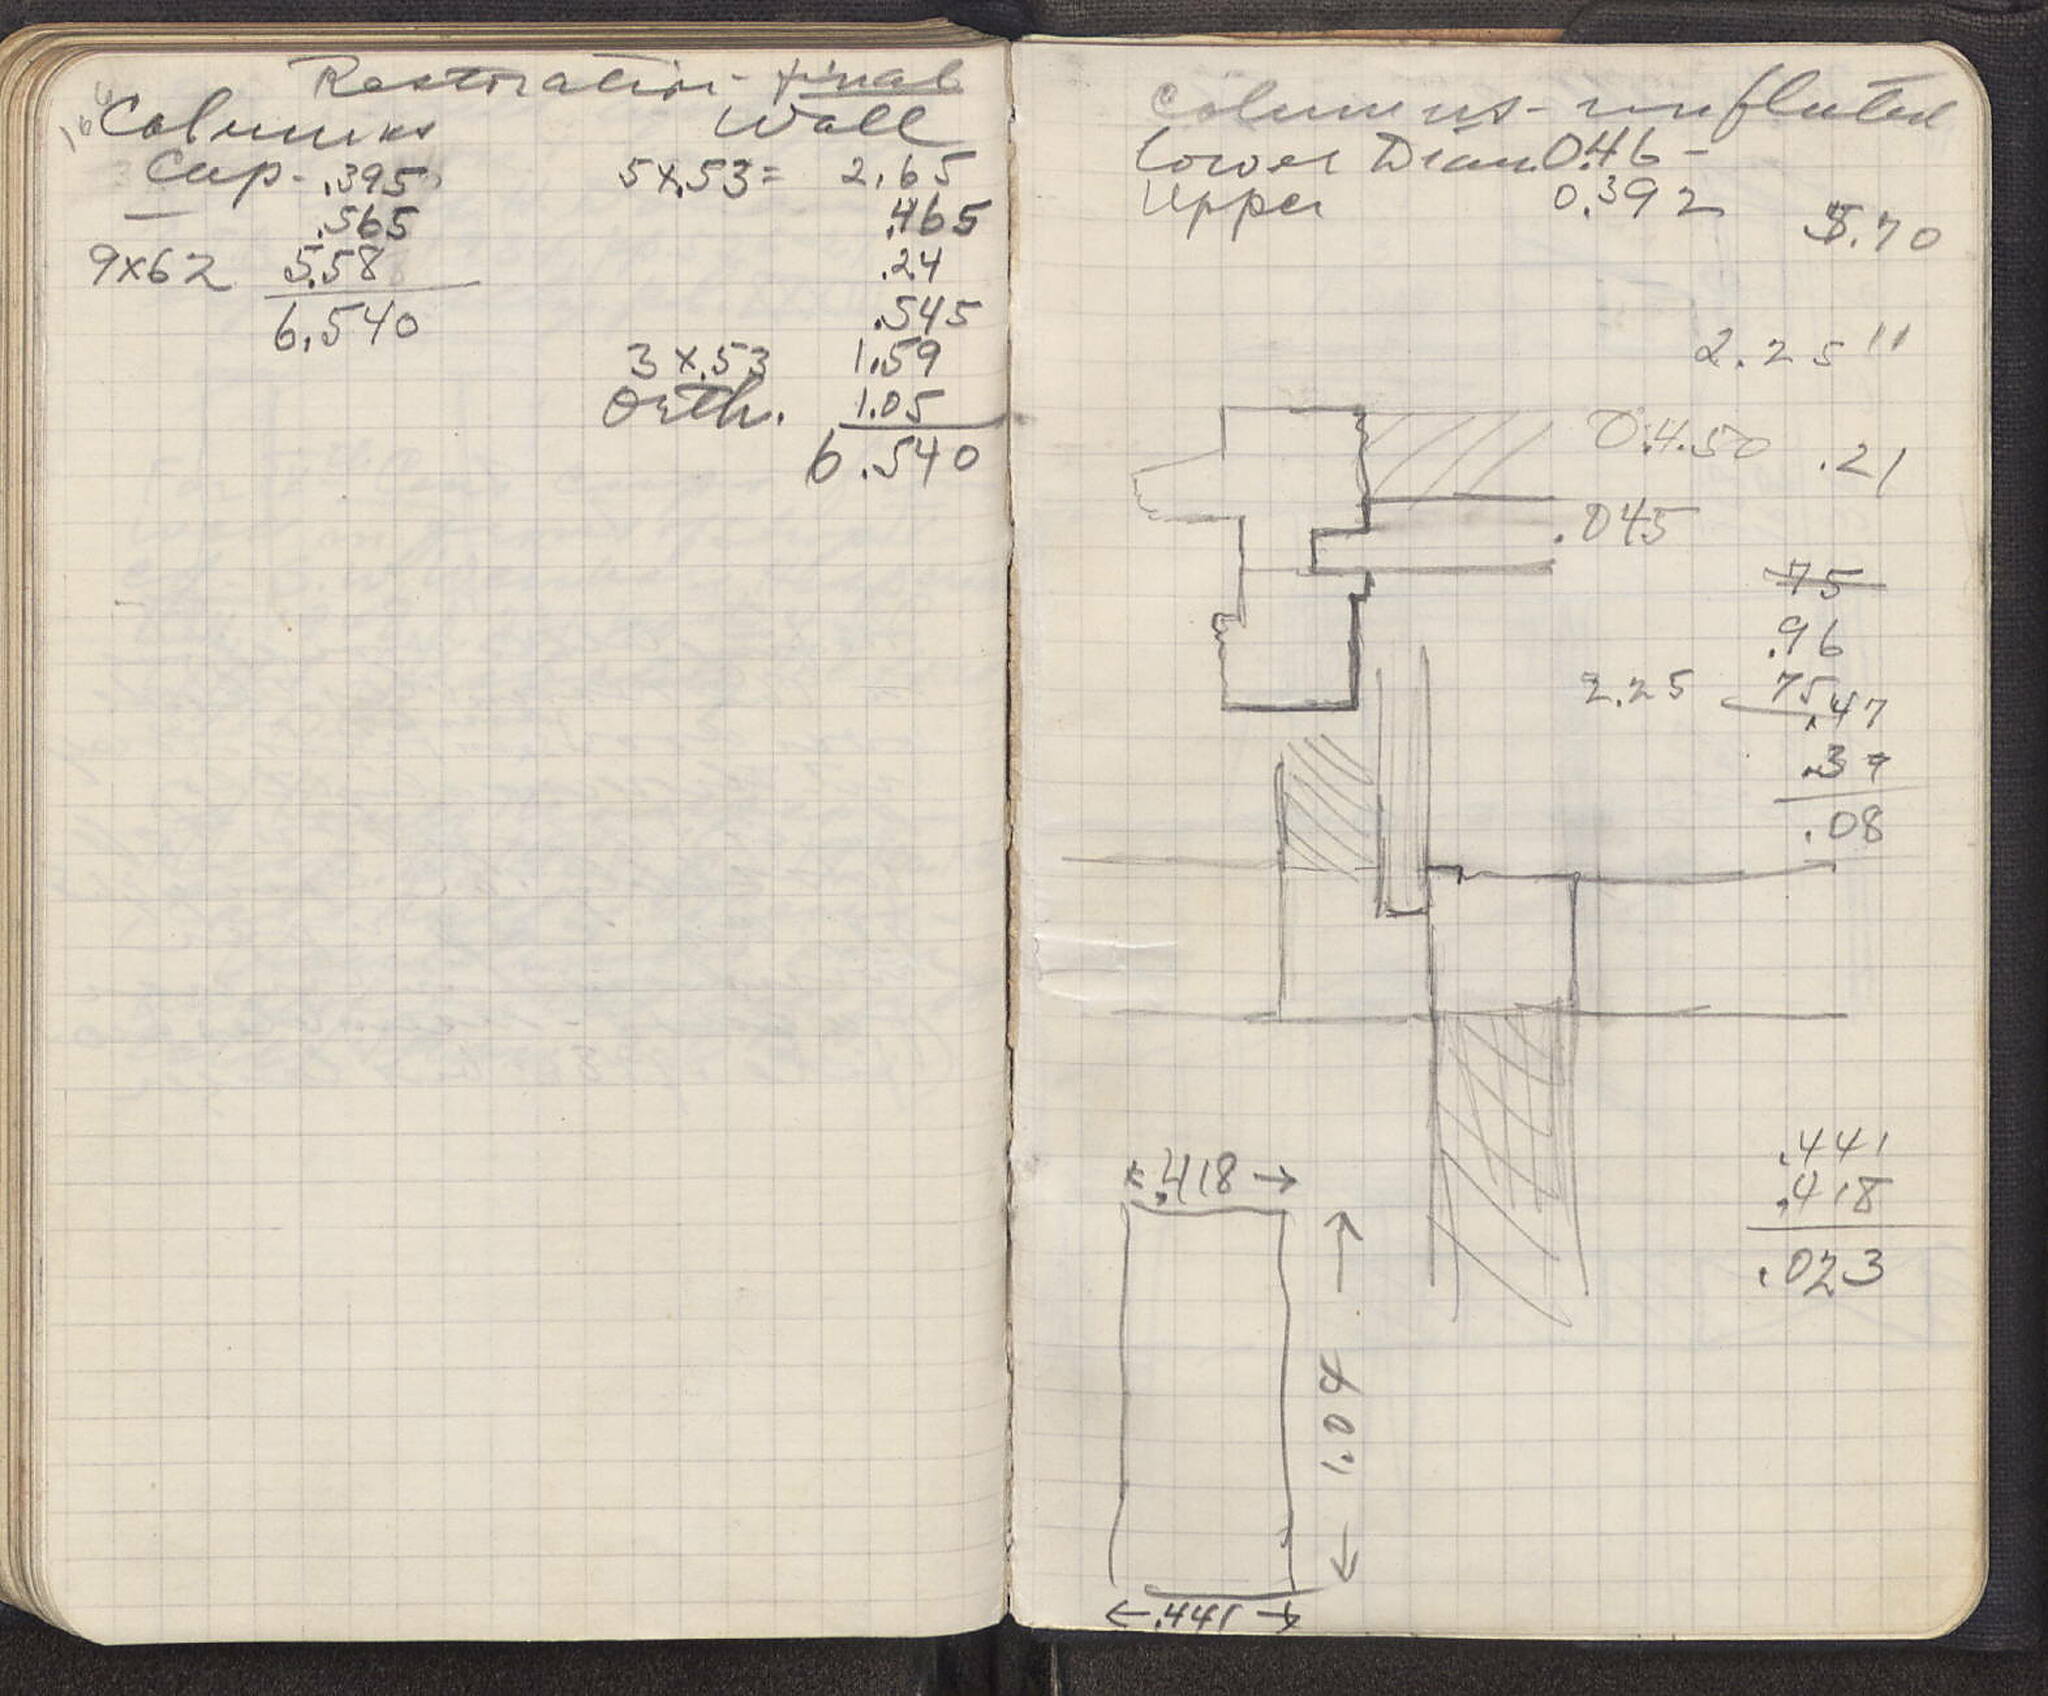 Restoration - final
Columns
Cap - .395
.565
9x62 5.58
6.540
Wall
5x.53 = 2.65
.465
.24
.545
3x.53 1.59
Orth. 1.05
6.540
Columns - unfluted
Lower Diam. 0.46 -
Upper 0.392
5.70
2.25"
0.4.50 .21
.045
75
.96
2.25 75.47
.37
.08
.441
.418
.023
.418
1.04
.441